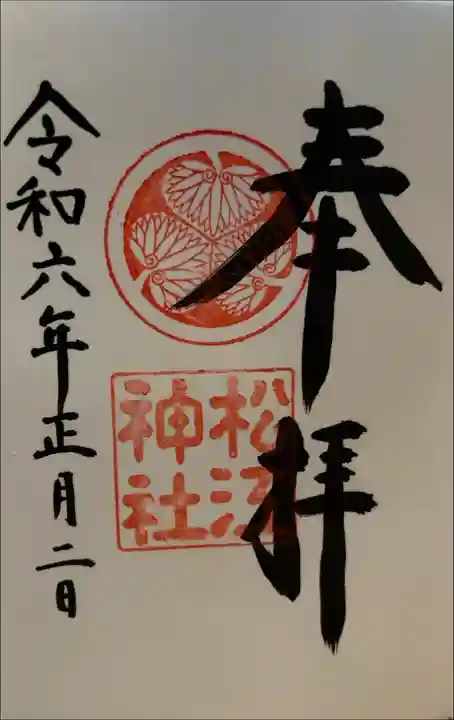 奉拝
松江
神社
令和六年正月二日